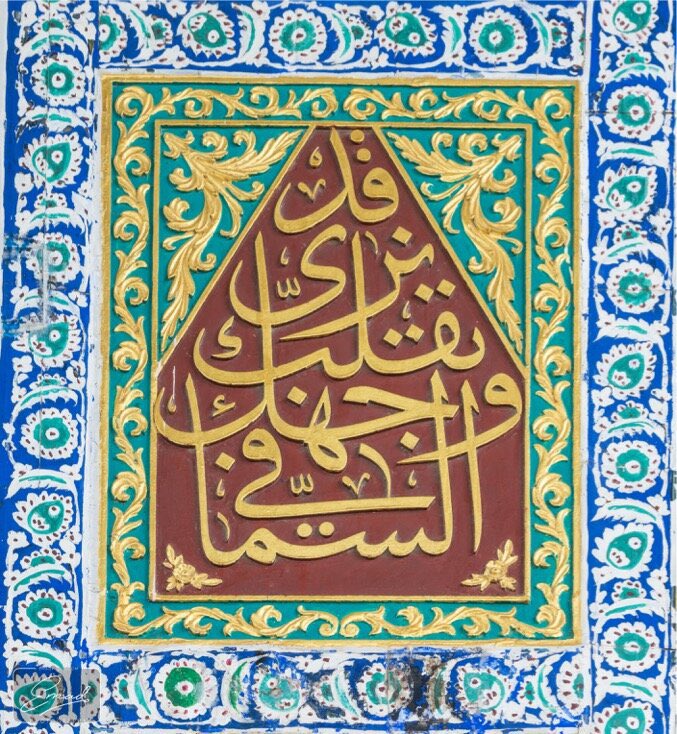 قد
نرى
تقلب
وجهك
في السماء